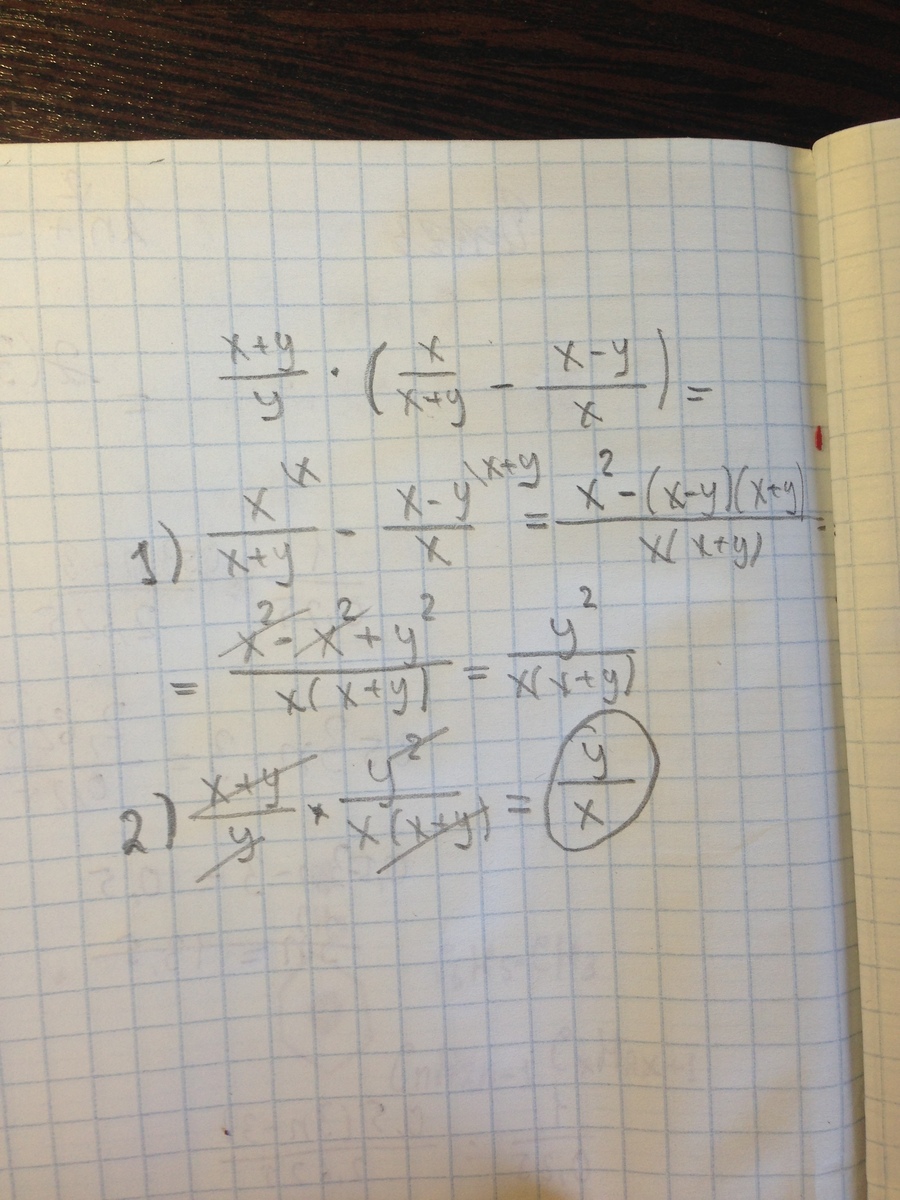 \frac{x+y}{y} \cdot \left( \frac{x}{x+y} - \frac{x-y}{x} \right) =
1) \frac{x^{\backslash x}}{x+y} - \frac{x-y^{\backslash x+y}}{x} = \frac{x^2-(x-y)(x+y)}{x(x+y)} =
= \frac{x^2-x^2+y^2}{x(x+y)} = \frac{y^2}{x(x+y)}
2) \frac{x+y}{y} \cdot \frac{y^2}{x(x+y)} = \frac{y}{x}